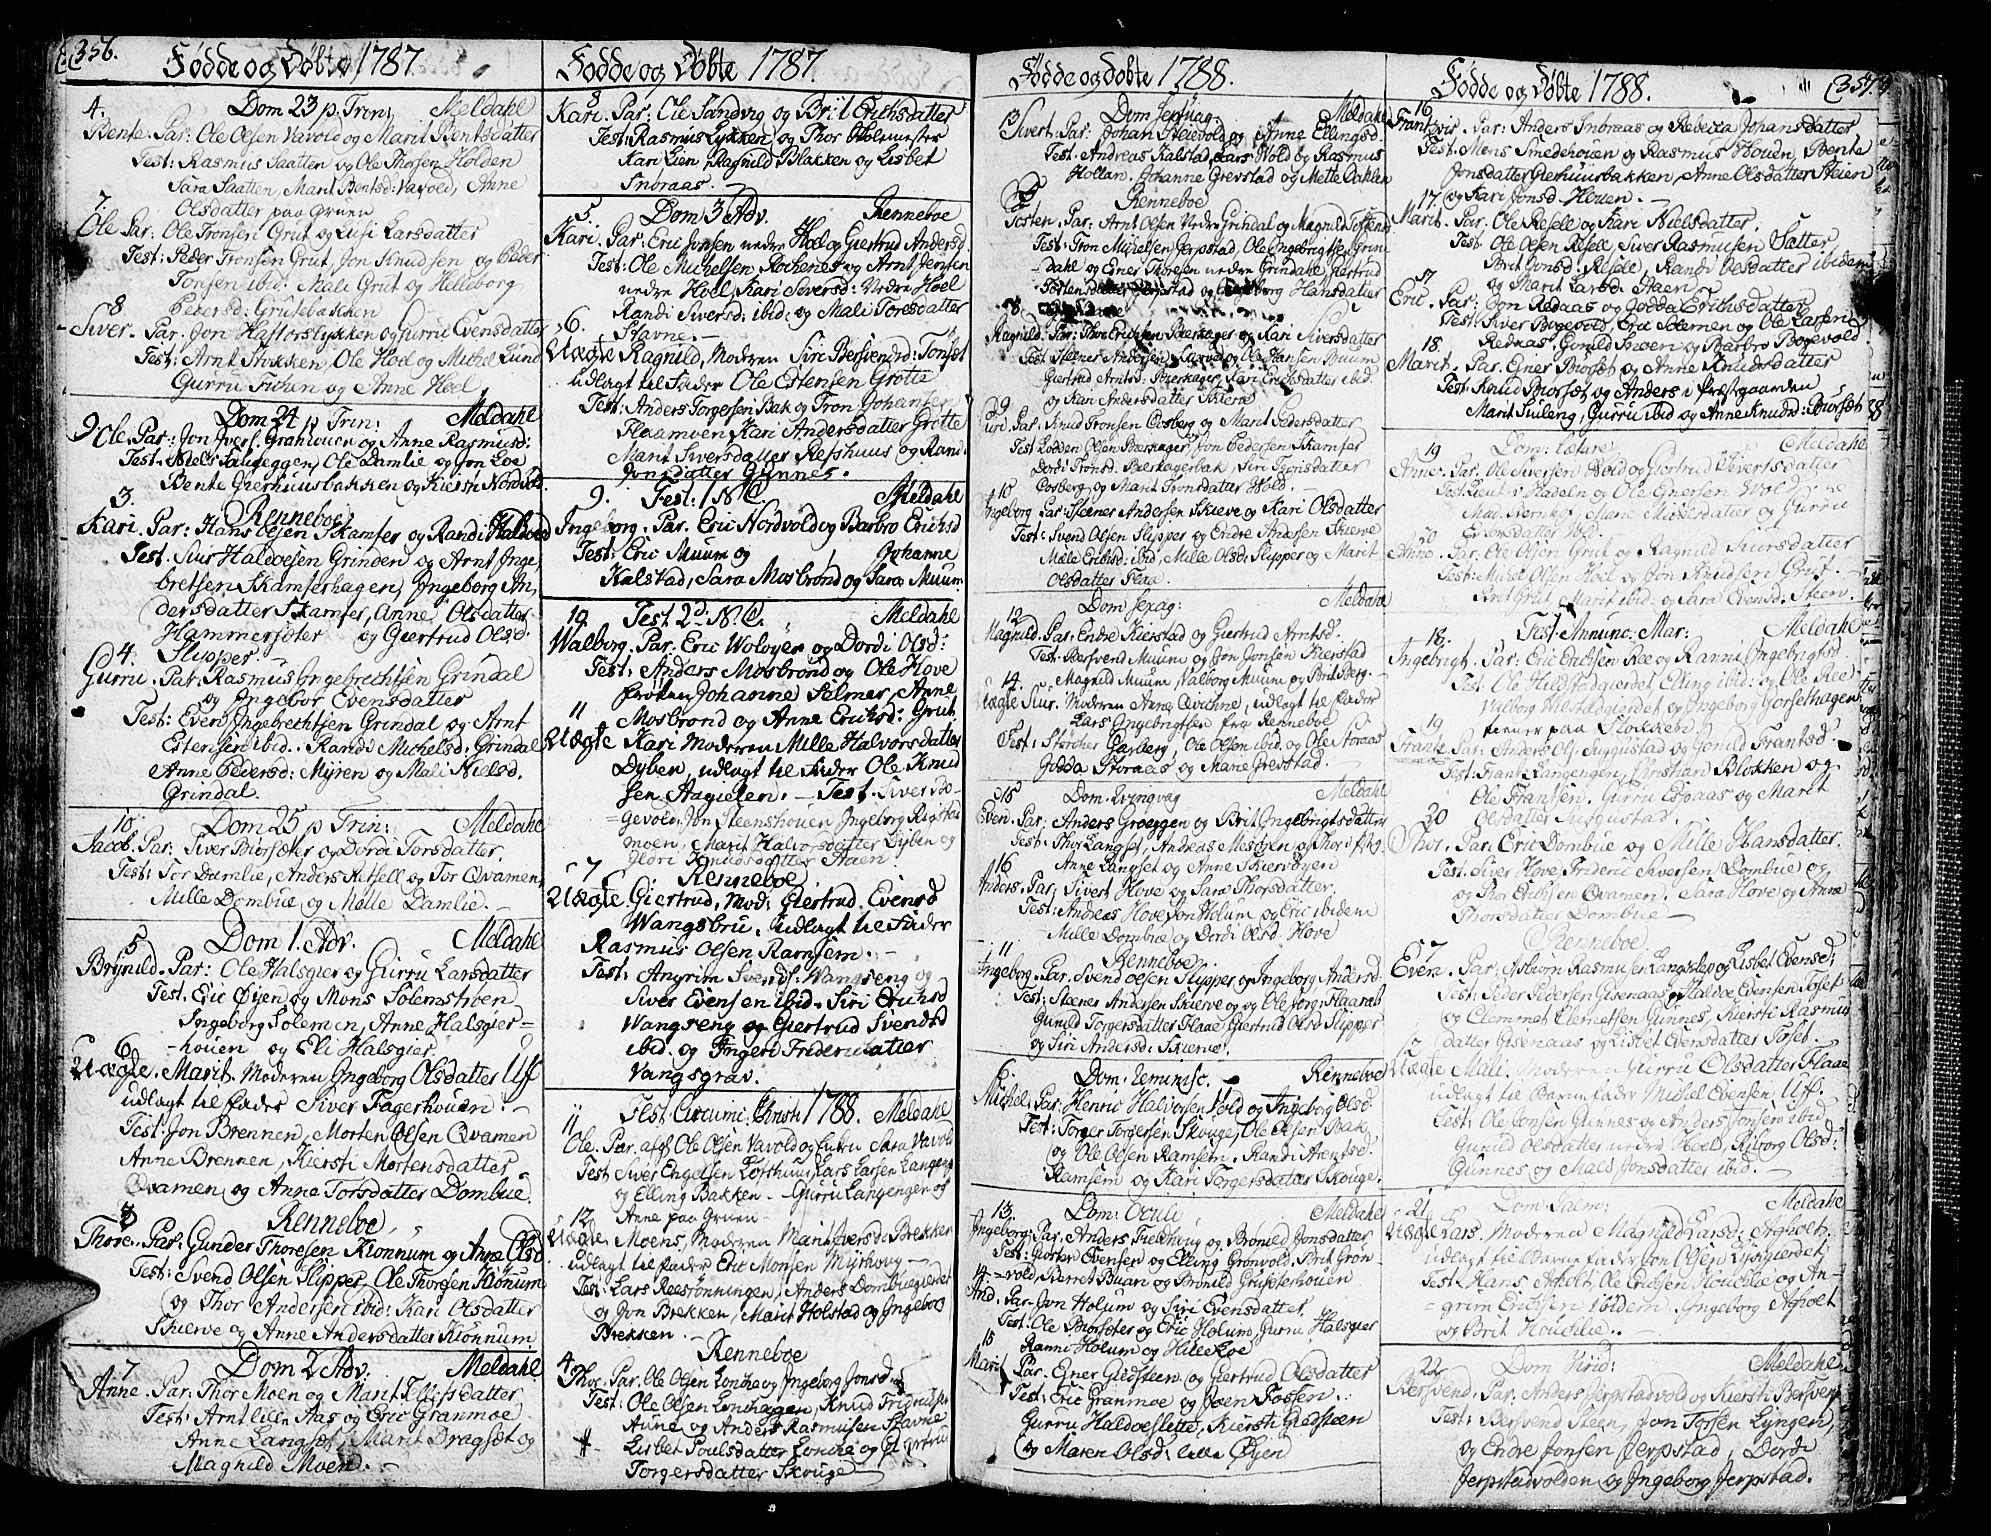 356.
Fødde og Døbte 1787.
4. Dom 23 p. Trin: Meldahl
Bente. Par: Ole Olsen Vavold og Marit Bentsdatter
Test: Rasmus Saatten og Ole Thorsen Holden
Sara Saatten, Marit Bentsd: Vavold, Anne
Olsdatter paa Gruen
7.
Ole Par: Ole Tronsen Grut og Lusi Larsdatter
Test: Peder Tronsen Grut, Jon Knudsen og Peder
Tonsen ibid: Mali Grut og Helleborg
8 Pedersd: Grutebakken
Siver. Par: Jon Haftorslykken og Gurru Evensdatter
Test: Arnt Stukken, Ole Hoel og Michel Lund
Gurru Fichen og Anne Hoel
Dom 24 p Trin: Meldahl
9 Ole. Par: Jon Ivers. Gramouen og Anne Rasmusd:
Test: Niels Saugeggen, Ole Damlie og Jon Loe
Bente Gierhuusbakken og Kiersti Nordvold
3. Renneboe
Kari. Par: Hans Olsen Skamfer og Randi Haldoesd
Test: Siur Haldoesen Grinden og Arnt Inge
bretsen Skamferhagen, Ingeborg An
dersdatter Skamfer, Anne Olsdatter
Hammersøter og Giertrud Olsd.
4. Slipper.
Gurru. Par: Rasmus Ingebrechtsen Grindal
og Ingebor Evensdatter
Test: Even Ingebrechtsen Grindal og Arnt
Estensen ibid: Randi Michelsd: Grindal
Anne Pedersd: Myren og Mali Nielsd.
Grindal.
10 Dom 25 p Trin: Meldahl
Jacob. Par: Siver Biorsæter og Dordi Torsdatter.
Test: Tor Damlie, Anders Refsell og Tor Qvamen
Mille Dombue og Mølle Damlie.
5 Dom 1. Adv. Meldahl
Brynild. Par: Ole Halsgier og Gurru Larsdatter
Test: Eric Øyen og Mons Solemstroen
Ingeborg Solemen, Anne Halsgier-
6. houen og Eli Halsgier.
Uægte. Marit. Moderen Ingeborg Olsdatter Uff
udlagt til fader Siver Fagerhouen.
Test: Jon Brennen, Morten Olsen Qvamen
Anne Brennen, Kiersti Mortensdatter
Qvamen og Anne Torsdatter Dombue.
Renneboe
Thore. Par: Gunder Thoresen Kionnum og Anne Olsd
Test: Svend Olsen Slipper, Ole Thoresen Kiönum
og Thor Andersen ibid: Kari Olsdatter
Skierve og Anne Andersdatter Kionnum
7 Dom 2 Adv. Meldahl
Anne. Par: Thor Moen og Marit Ellefsdatter
Test: Arnt lille Aas og Eric Granmoe
Anne Langsøt, Marit Dragsøt og
Magnild Moen.
Fødde og Døbte 1787
8
Kari. Par: Ole Sandvig og Brit Erichsdatter
Test: Rasmus Lykken og Thor Holemester
Kari Lien, Ragnild Blakken og Lisbet
Snøraas.
5. Dom 3 Adv. Renneboe
Kari. Par: Eric Jonsen nedre Hoel og Giertrud Andersd.
Test: Ole Michelsen Rochenes og Arnt Jensen
nedre Hoel, Kari Siversd: Nedre Hoel
Randi Siversd: ibid: og Mali Toresdatter
6. Stavne.
Uægte Ragnild, Moderen Siri Bersvendsd: Tonset
udlagt til fader Ole Estensen Grotte
Test: Anders Torgersen Bak og Tron Johansen
Haamoen, Kari Andersdatter Grotte
Marit Siversdatter Refshuus og Randi
Jonsdatter Gunnes.
9. Fest: 1 N.C. Meldahl
Ingeborg. Par: Eric Nordvold og Barbro Erichsd
Test: Eric Muum og Johanne
Kalstad, Sara Mosbrond og Sara Muum
10. Fest 2d: N.C. Meldahl
Walborg. Par: Eric Woloyen og Dordi Olsd:
Test: Anders Mosbrond og Ole Hove
Johanne Selmer, Anne
11 Mosbrond og Anne Erichsd: Grut
Uægte Kari Moderen Mille Halvorsdatter
Dyben, udlagt til fader Ole Knud
sen Aagielen: - Test: Siver Bo
gevold, Jon Steenshouen, Ingeborg Rigstad
moen, Marit Halvorsdatter Dyben og
Ildri Knudsdatter Aaen.
7 Renneboe
Uægte Giertrud, Mod: Giertrud Evensd
Wangsbru, udlagt til fader
Rasmus Olsen Ramsem.
Test: Anyrim Svends: Wangseng og
Siver Evensen ibid: Siri Erichsd
Wangseng og Giertrud Svendsd
ibid. og Ingeri Friderichdatter
Vangsgrav.
11 Fest Circumc: Christi 1788. Meldahl
Ole. Par. afgl Ole Olsen Vavold og Enken Sara Vavold
Test: Siver Engelsen Lorthuus, Lars Larsen Langeng
og Elling Bakken. Gurru Langengen og
12. Anne paa Gruen
Uægte Moens, Moderen Marit Iversd: Brekken
udlagt til fader Eric Monsen Myrhoug
Test: Lars Reesrønningen, Anders Dombuegierdet
og Jon Brekken, Marit Holstad og Ingeborg
Brekken.
4. Renneboe
Thor. Par: Ole Olsen Lonche og Ingeborg Jonsd
Test: Ole Olsen Lonchagen, Knud Fridrichsen
Aune og Anders Rasmusen Stavne
Lisbet Poulsdatter Lonche og Giertrud
Torgersdatter Skouge
Fødde og Døbte 1788.
13 Dom Septuag: Meldahl
Sivert. Par: Johan Steievold og Anne Ellingsd:
Test: Andreas Kalstad, Lars Wold og Rasmus
Hollan. Johanne Grevstad og Mette Dahlen
Renneboe
Tosten. Par: Arnt Olsen Nedre Grindal og Magnild Tostensd
Test: Tron Michelsen Jerpstad, Ole Ingebrigtsen Grin-
dahl og Esner Thoresen nedre Grindahl, Giertrud
Tostensdatter Jerpstad og Ingeborg Hansdatter
8.
Ragnild. Par: Thore Erichsen Bærkager og Kari Siversdatter
Test: Steener Andersen Skarvol og Ole Hansen Buum
Giertrud Arntsd: Bærkager, Kari Erichsdatter ibid.
og Kari Andersdatter Skierve
9
Guri. Par: Knud Tronsen Oosberg og Marit Pedersdatter
Test Lodden Olsen Bærkager, Jon Pedersen Skamfer
Dordi Tronsd: Bærkagerbak, Siri Tronsdatter
Oosberg og Marit Tronsdatter Wold.
10
Ingeborg Par: Steener Andersen Skierve og Kari Olsdatter
Test: Svend Olsen Slipper og Endre Andersen Skierve
Mille Erichsd: ibid: Mille Olsd: Slipper og Marit
Olsdatter Flaa.
12. Dom Sexag: Meldahl
Magnild. Par: Endre Kierstad og Giertrud Arntsd.
Test: Bersvend Muum og Jon Jonsen Kierstad
14. Magnild Muum, Valborg Muum og Brit Berg.
Uægte Siur. Moderen Anne Qvichne, udlagt til fader
Lars Ingebrigtsen fra Renneboe
Test: Størcher Gasberg, Ole Olsen ibid. og Ole Storaas
Jødda Storaas og Marie Grevstad.
15 Dom: Qvinqvag Meldahl
Even. Par: Anders Groeggen og Brit Ingebrigtsdatter
Test: Thor Langset, Andreas Mesøyen og Thor
Anne Langset og Anne Skiervøyen
16
Anders. Par: Sivert Hove og Sara Thorsdatter.
Test: Andreas Hove, Jon Holum og Eric ibidem
Mille Dombue og Dordi Olsd: Hove
11 Renneboe
Ingebog. Par: Svend Olsen Slipper og Ingeborg Andersd:
Test: Steener Andersen Skierve og Ole Jørg: Flaaneb
Gunild Torgersdatter Flaae, Giertrud Olsd Slipper
og Siri Andersd: Skierve.
6. Dom: Reminisc. Renneboe
Michel. Par: Henric Halvorsen Vold og Ingeborg Olsd.
Test: Torger Torgersen Skouge, Ole Olsen Bak,
og Ole Olsen Ramsem. Randi Arentsd:
Ramsem og Kari Torgersdatter Skouge.
13. Dom: Oculi Meldahl
Ingeborg. Par: Anders Fieldhoug og Brønild Jonsdatter
Test: Gorten Evensen og Elling Gronvold, Brit Grön-
14. vold, Berret Buan og Brønild Grutsterhouen
And. Par: Jon Holum og Siri Evensdatter,
Test: Ole Biorsæter og Eric Holum, Gurru Halsgier
15 Ranni Holum og Hille Loe
Marit Par: Esner Giedsteen og Giertrud Olsdatter
Test: Eric Granmoe og Joen Fossen.
Gurru Haldoeslette, Kiersti Giedsteen
og Maren Olsd: lille Øyen
357.
Fødde og Døbte 1788.
16
Frant Par: Anders Snoraas og Rebecca Johansdatter
Test: Mons Smedehouen og Rasmus Houen, Bente
Jonsdatter Gierhuusbakken, Anne Olsdatter Steien
17 og Kari Jonsd: Houen.
Marit Par: Ole Reselle og Kari Nielsdatter.
Test: Ole Olsen Reselle, Siver Rasmusen Sætter
Brit Jonsd: Reselle, Randi Olsdatter ibidem
17 og Marit Larsd: Aaen.
Eric. Par: Jon Redaas og Jødda Erichsdatter
Test: Siver Bogevold, Eric Solemen og Ole Larsen
18. Redaas, Gunild Snoen og Barbro Bogevold.
Marit. Par: Esner Biorset og Anne Knudsdatter
Test: Knud Biorset og Anders i Prestgaarden
Marit Siuleng, Gurru ibid og Anne Knudsd: Biorsæt
19 Dom: Lætare Meldahl
Anne. Par: Ole Siversen Wold og Giertrud Sivertsdatter
Test: Lieut v: Hadeln og Ole Enersen Wold
Mad. Stornhof, Marie Michelsdatter og Gurru
20 Evensdatter Wold.
Anne. Par: Ole Olsen Grut og Ragnild Siursdatter
Test: Michel Olsen Hoel og Jon Knudsen Grut.
Brit Grut, Marit ibid: og Sara Evensd: Steen.
18. Fest Annunc: Mar: Meldahl
Ingebrigt. Par: Eric Erichsen Ree og Ranni Ingebrigtsd
Test: Ole Hilstadgierdet, Elling ibid: og Ole Ree
Walborg Hilstadgierdet og Ingeborg Gorsethagen
19 paa Stokken.
Frants Par: Anders Ols: Siuggustad og Gonild Frantsd.
Test: Frants Langengen, Christian Blokken og
Ole Frantsen, Gurru Espaas og Marit
20 Olsdatter Siuggustad.
Thor. Par: Eric Dombue og Mille Hansdatter.
Test: Siver Hove, Frideric Iversen Dombue og
og Thor Erichsen Qvamen, Sara Hove og Anne
Thorsdatter Dombue
7 Renneboe
Even. Par: Asbiørn Rasmusen Langklep og Lisbet Evensd:
Test: Peder Pedersen Gisenaas og Haldoe Evensen Toset
og Clemmet Clemetsen Gunnes, Kiersti Rasmus
datter Gisenaas og Lisbet Evensdatter Toset.
Uægte Mali. Moderen Gurru Olsdatter Flaae
udlagt til Barne fader Michel Evensen Uff.
Test: Ole Jonsen Gunnes og Anders Jonsen ibid
Gunild Olsdatter nedre Hoel, Ryborg Olsd:
Gunnes og Mali Jonsdatter ibid.
21. Dom: Palm: Meldahl
Uægte Lars. Moderen Magnild Larsd: Agholt
udlagt til Barne fader Jon Olsen Lykgierdet
Test: Hans Agholt, Ole Erichsen Houchlie og An-
grim Erichsen ibidem. Ingeborg Agholt
og Brit Houchlie.
22 Dom Virid: Meldahl
Bersvend. Par: Anders Jerpstadvold og Kiersti Bersvens
Test: Bersvend Steen, Jon Torsen Lyngen,
og Endre Jonsen Jerpstad, Dordi
Jerpstadvolden og Ingeborg Jerpstad.